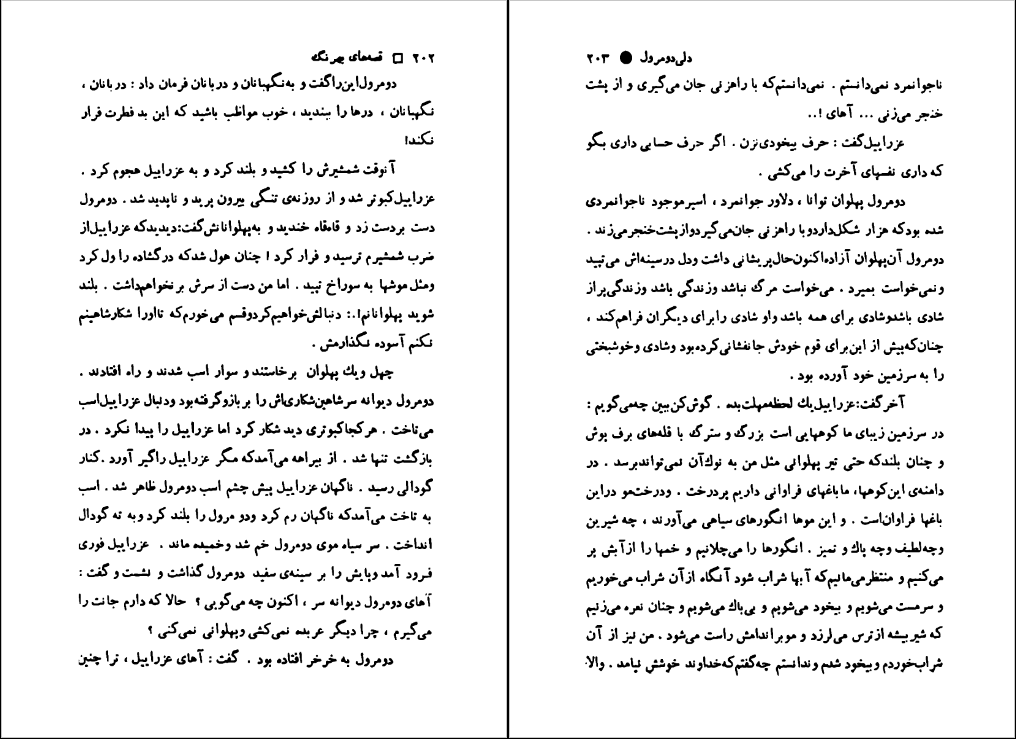 ۲۰۲ □ قصه‌های بهرنگ
دومرول‌این‌راگفت و به‌نگهبانان و دربانان فرمان داد : دربانان ،
نگهبانان ، درها را ببندید ، خوب مواظب باشید که این بد فطرت فرار
نکند!
آنوقت شمشیرش را کشید و بلند کرد و به عزراییل هجوم کرد .
عزراییل‌کبوتر شد و از روزنه‌ی تنگی بیرون پرید و ناپدید شد . دومرول
دست بردست زد و قاه‌قاه خندید و به‌پهلوانانش‌گفت:دیدیدکه عزراییل‌از
ضرب شمشیرم ترسید و فرار کرد ! چنان هول شدکه درگشاده را ول‌کرد
ومثل موشها به سوراخ تپید . اما من دست از سرش برنخواهم‌داشت . بلند
شوید پهلوانانم!.: دنبالش‌خواهیم‌کردوقسم می‌خورم‌که تااورا شکارشاهینم
نکنم آسوده نگذارمش .
چهل ویك پهلوان برخاستند و سوار اسب شدند و راه افتادند .
دومرول دیوانه سرشاهین‌شکاری‌اش را بر بازوگرفته‌بود ودنبال عزراییل‌اسب
می‌تاخت . هرکجاکبوتری دید شکار کرد اما عزراییل را پیدا نکرد . در
بازگشت تنها شد . از بیراهه می‌آمدکه مگر عزراییل راگیر آورد .کنار
گودالی رسید . ناگهان عزراییل پیش چشم اسب دومرول ظاهر شد . اسب
به تاخت می‌آمدکه ناگهان رم کرد ودو مرول را بلند کرد وبه ته گودال
انداخت . سر سیاه موی دومرول خم شد وخمیده ماند . عزراییل فوری
فرود آمد وپایش را بر سینه‌ی سفید دومرول گذاشت و نشست و گفت :
آهای دومرول دیوانه سر ، اکنون چه می‌گویی ؟ حالا که دارم جانت را
می‌گیرم ، چرا دیگر عربده نمی‌کشی وپهلوانی نمی‌کنی ؟
دومرول به خرخر افتاده بود . گفت : آهای عزراییل ، ترا چنین
دلی‌دومرول ● ۲۰۳
ناجوانمرد نمی‌دانستم . نمی‌دانستم‌که با راهزنی جان می‌گیری و از پشت
خنجر می‌زنی ... آهای !..
عزراییل‌گفت : حرف بیخودی‌نزن . اگر حرف حسابی داری بگو
که داری نفسهای آخرت را می‌کشی .
دومرول پهلوان توانا ، دلاور جوانمرد ، اسیرموجود ناجوانمردی
شده بودکه هزار شکل‌داردوبا راهزنی جان‌می‌گیردوازپشت‌خنجرمی‌زند .
دومرول آن‌پهلوان آزاده‌اکنون‌حال‌پریشانی داشت ودل درسینه‌اش می‌تپید
ونمی‌خواست بمیرد . می‌خواست مرگ نباشد وزندگی باشد وزندگی‌پراز
شادی باشدوشادی برای همه باشد واو شادی رابرای دیگران فراهم‌کند ،
چنان‌که‌پیش از این‌برای قوم خودش جانفشانی‌کرده‌بود وشادی وخوشبختی
را به سرزمین خود آورده بود .
آخرگفت:عزراییل‌یك لحظه‌مهلت‌بده . گوش‌کن‌ببین چه‌می‌گویم :
در سرزمین زیبای ما کوههایی است بزرگ و سترگ با قله‌های برف پوش
و چنان بلندکه حتی تیر پهلوانی مثل من به نوك‌آن نمی‌تواندبرسد . در
دامنه‌ی این‌کوهها، ماباغهای فراوانی داریم پردرخت . ودرخت‌مو دراین
باغها فراوان‌است . و این موها انگورهای سیاهی می‌آورند ، چه شیرین
وچه‌لطیف وچه پاك و تمیز . انگورها را می‌چلانیم و خمها را ازآبش پر
می‌کنیم و منتظرمی‌مانیم‌که آبها شراب شود آنگاه ازآن شراب می‌خوریم
و سرمست می‌شویم و بیخود می‌شویم و بی‌باك می‌شویم و چنان نعره می‌زنیم
که شیربیشه ازترس می‌لرزد و موبراندامش راست می‌شود . من نیز از آن
شراب‌خوردم وبیخود شدم وندانستم چه‌گفتم‌که‌خداوند خوشش نیامد . والا